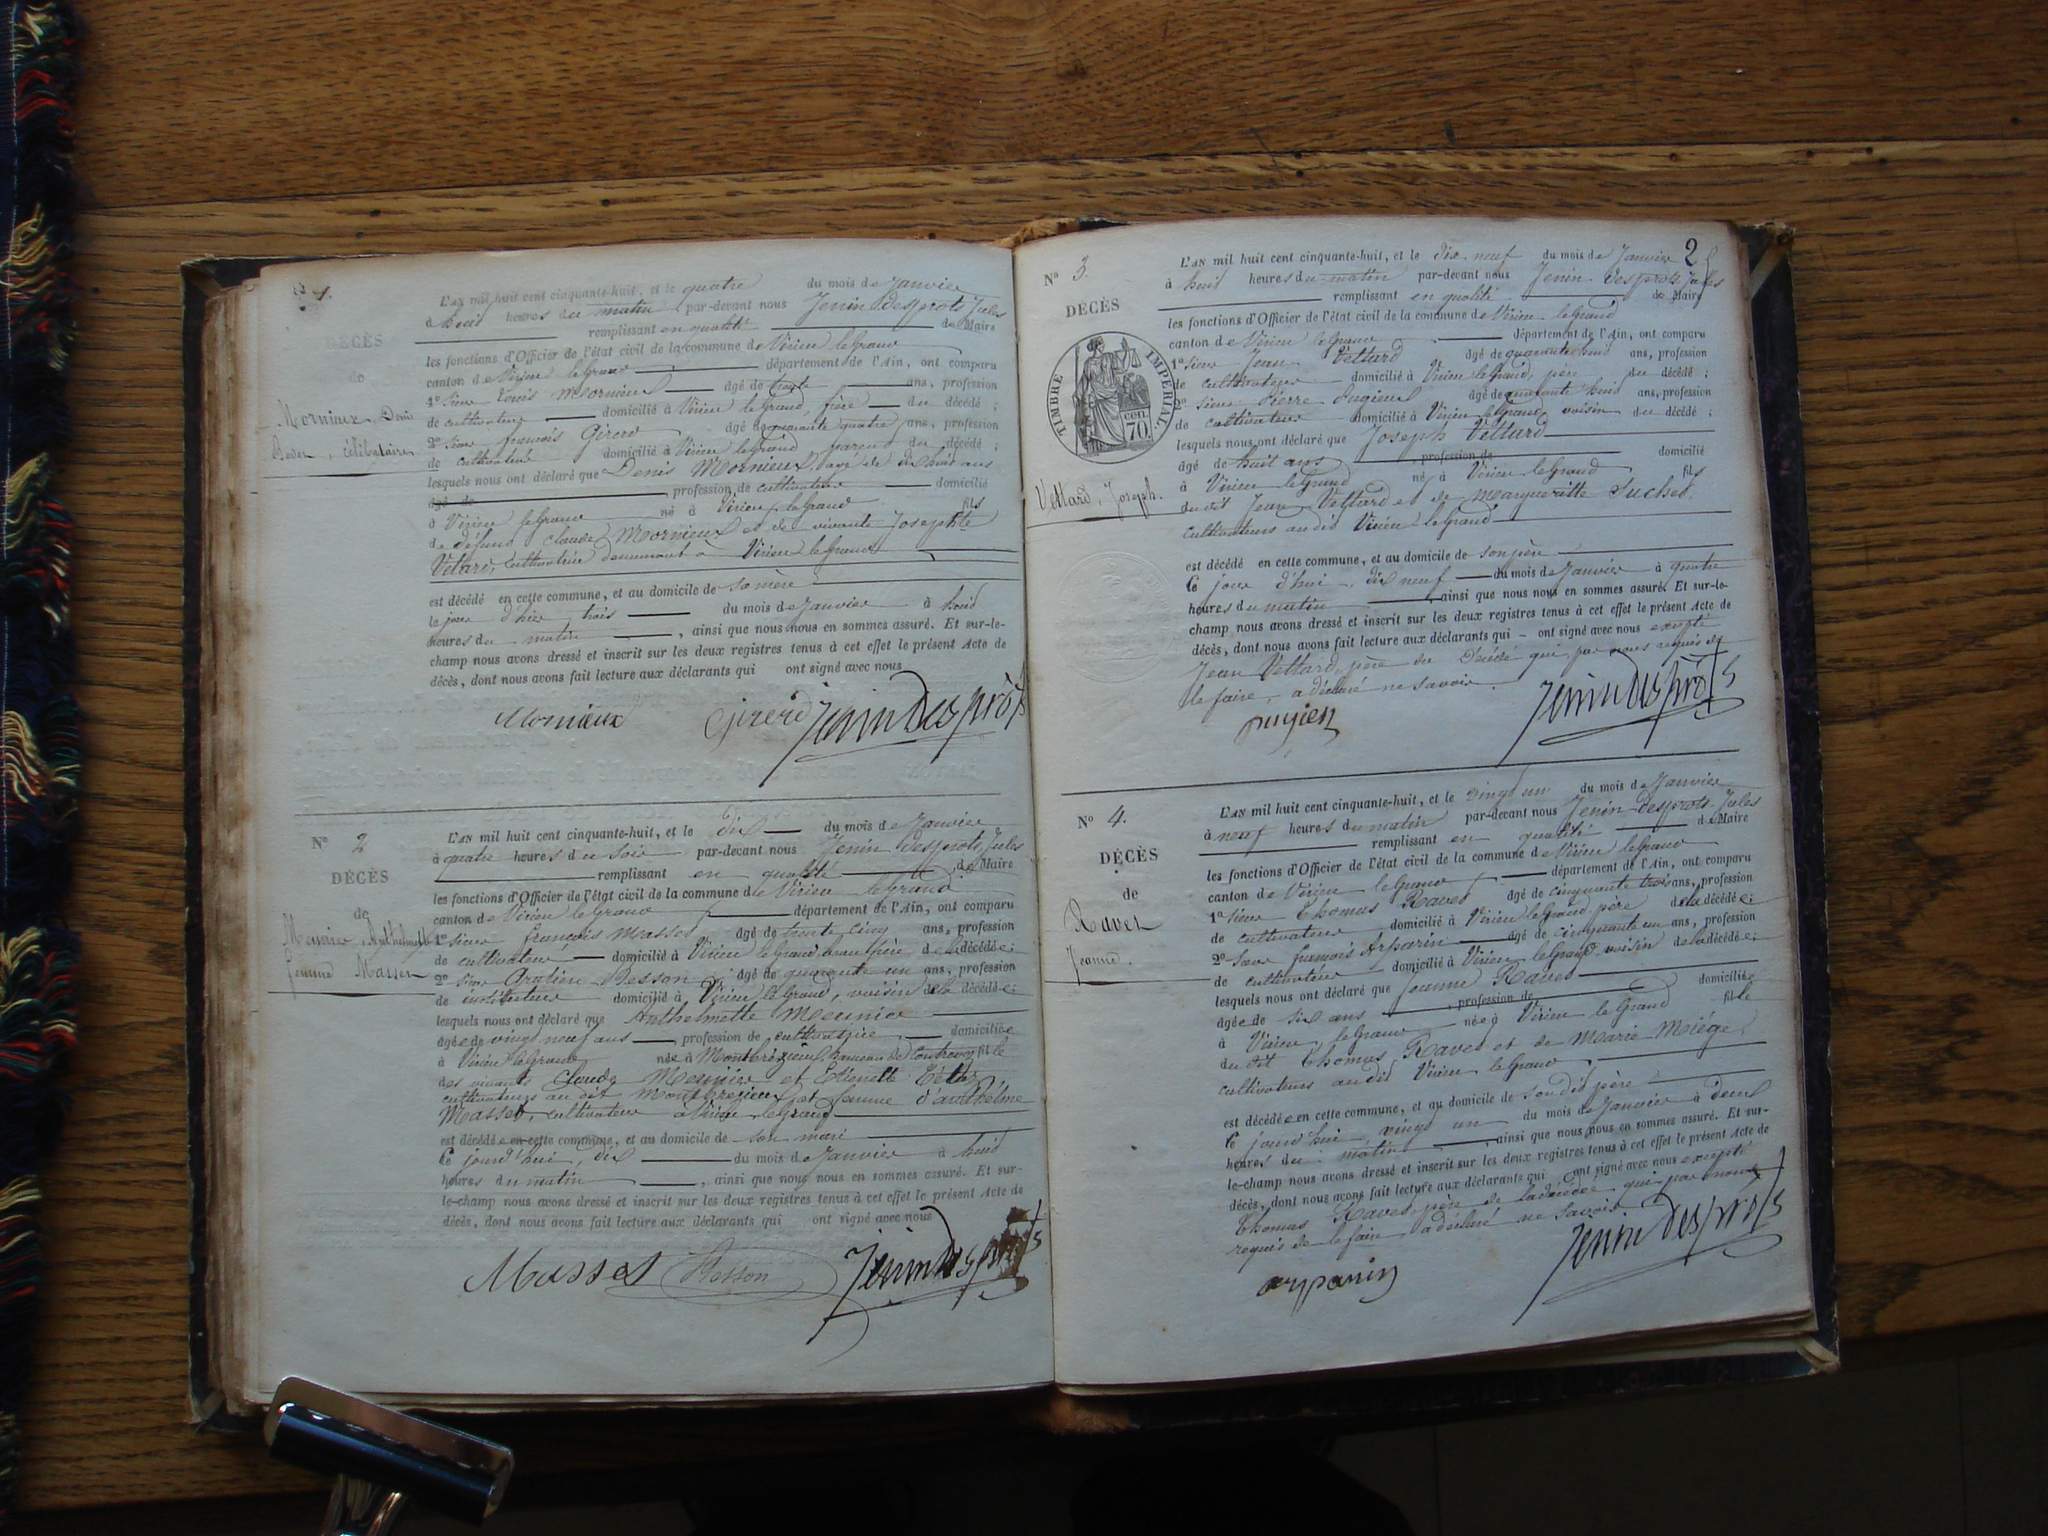 N° 1.
DÉCÈS
de
Mornieux, Denis
célibataire
L'AN mil huit cent cinquante-huit, et le quatre du mois de Janvier
à huit heures du matin par-devant nous Jenin Desprots Jules
remplissant en qualité de Maire
les fonctions d'Officier de l'état civil de la commune de Virieu le Grand
canton de Virieu le Grand département de l'Ain, ont comparu
1° Sieur Louis Mornieux âgé de trente ans, profession
de cultivateur domicilié à Virieu le Grand, frère du décédé ;
2° Sieur françois Girerd âgé de quarante quatre ans, profession
de cultivateur domicilié à Virieu le Grand parent du décédé ;
lesquels nous ont déclaré que Denis Mornieux, âgé de dix huit ans
âgé de , profession de cultivateur domicilié
à Virieu le Grand né à Virieu le Grand fils
de défunt Claude Mornieux et de vivante Josephte
Vetard, cultivatrice demeurant à Virieu le Grand
est décédé en cette commune, et au domicile de sa mère
le jour d'hier, trois du mois de Janvier à huit
heures du matin , ainsi que nous nous en sommes assuré. Et sur-le-
champ nous avons dressé et inscrit sur les deux registres tenus à cet effet le présent Acte de
décès, dont nous avons fait lecture aux déclarants qui ont signé avec nous
Mornieux Girerd Jenin Desprots
N° 2
DÉCÈS
de
Meunier Anthelmette
femme Masset
L'AN mil huit cent cinquante-huit, et le dix du mois de Janvier
à quatre heures du soir par-devant nous Jenin Desprots, Jules
remplissant en qualité de Maire
les fonctions d'Officier de l'état civil de la commune de Virieu le Grand
canton de Virieu le Grand département de l'Ain, ont comparu
1° Sieur françois Masset âgé de trente cinq ans, profession
de cultivateur domicilié à Virieu le Grand beau frère de la décédée ;
2° Sieur Besson âgé de quarante un ans, profession
de instituteur domicilié à Virieu le Grand, voisin de la décédée ;
lesquels nous ont déclaré que Anthelmette Meunier
âgée de vingt neuf ans , profession de cultivatrice domiciliée
à Virieu le Grand née à Montbrezieux hameau de Contrevoz fille
des vivants Claude Meunier et Etienette
cultivateurs au dit Montbrezieux, et femme d'anthelme
Masset, cultivateur à Virieu le Grand
est décédée en cette commune, et au domicile de son mari
Ce jourd'hui, dix du mois de Janvier à huit
heures du matin , ainsi que nous nous en sommes assuré. Et sur-
le-champ nous avons dressé et inscrit sur les deux registres tenus à cet effet le présent Acte de
décès, dont nous avons fait lecture aux déclarants qui ont signé avec nous
Masset Besson Jenin Desprots
2
N° 3.
DÉCÈS
TIMBRE IMPÉRIAL
70
Vettard, Joseph.
L'AN mil huit cent cinquante-huit, et le dix neuf du mois de Janvier
à huit heures du matin par-devant nous Jenin Desprots Jules
remplissant en qualité de Maire
les fonctions d'Officier de l'état civil de la commune de Virieu le Grand
canton de Virieu le Grand département de l'Ain, ont comparu
1° Sieur Jean Vettard âgé de quarante huit ans, profession
de cultivateur domicilié à Virieu le Grand, père du décédé ;
2° Sieur Pierre Pugieux âgé de quarante huit ans, profession
de cultivateur domicilié à Virieu le Grand, voisin du décédé ;
lesquels nous ont déclaré que Joseph Vettard
âgé de huit ans , profession de domicilié
à Virieu le Grand né à Virieu le Grand fils
du dit Jean Vettard et de Margueritte Suchet
cultivateurs au dit Virieu le Grand
est décédé en cette commune, et au domicile de son père
Ce jour d'hui dix neuf du mois de Janvier à quatre
heures du matin , ainsi que nous nous en sommes assuré. Et sur-le-
champ nous avons dressé et inscrit sur les deux registres tenus à cet effet le présent Acte de
décès, dont nous avons fait lecture aux déclarants qui ont signé avec nous excepté
Jean Vettard, père du Décédé qui par nous requis de
le faire, a déclaré ne savoir.
pugieu Jenin Desprots
N° 4.
DÉCÈS
de
Ravet
Jeanne.
L'AN mil huit cent cinquante-huit, et le vingt un du mois de Janvier
à neuf heures du matin par-devant nous Jenin Desprots Jules
remplissant en qualité de Maire
les fonctions d'Officier de l'état civil de la commune de Virieu le Grand
canton de Virieu le Grand département de l'Ain, ont comparu
1° Sieur Thomas Ravet âgé de cinquante trois ans, profession
de cultivateur domicilié à Virieu le Grand père de la décédée ;
2° Sieur françois Arparin âgé de cinquante un ans, profession
de cultivateur domicilié à Virieu le Grand voisin de la décédée ;
lesquels nous ont déclaré que Jeanne Ravet
âgée de six ans , profession de domiciliée
à Virieu le Grand née à Virieu le Grand fille
du dit Thomas Ravet et de Marie Miége,
cultivateurs au dit Virieu le Grand
est décédée en cette commune, et au domicile de son dit père
Ce jourd'hui vingt un du mois de Janvier à deux
heures du matin , ainsi que nous nous en sommes assuré. Et sur-
le-champ nous avons dressé et inscrit sur les deux registres tenus à cet effet le présent Acte de
décès, dont nous avons fait lecture aux déclarants qui ont signé avec nous excepté
Thomas Ravet, père de la décédée qui par nous
requis de le faire a déclaré ne savoir
arparin Jenin Desprots